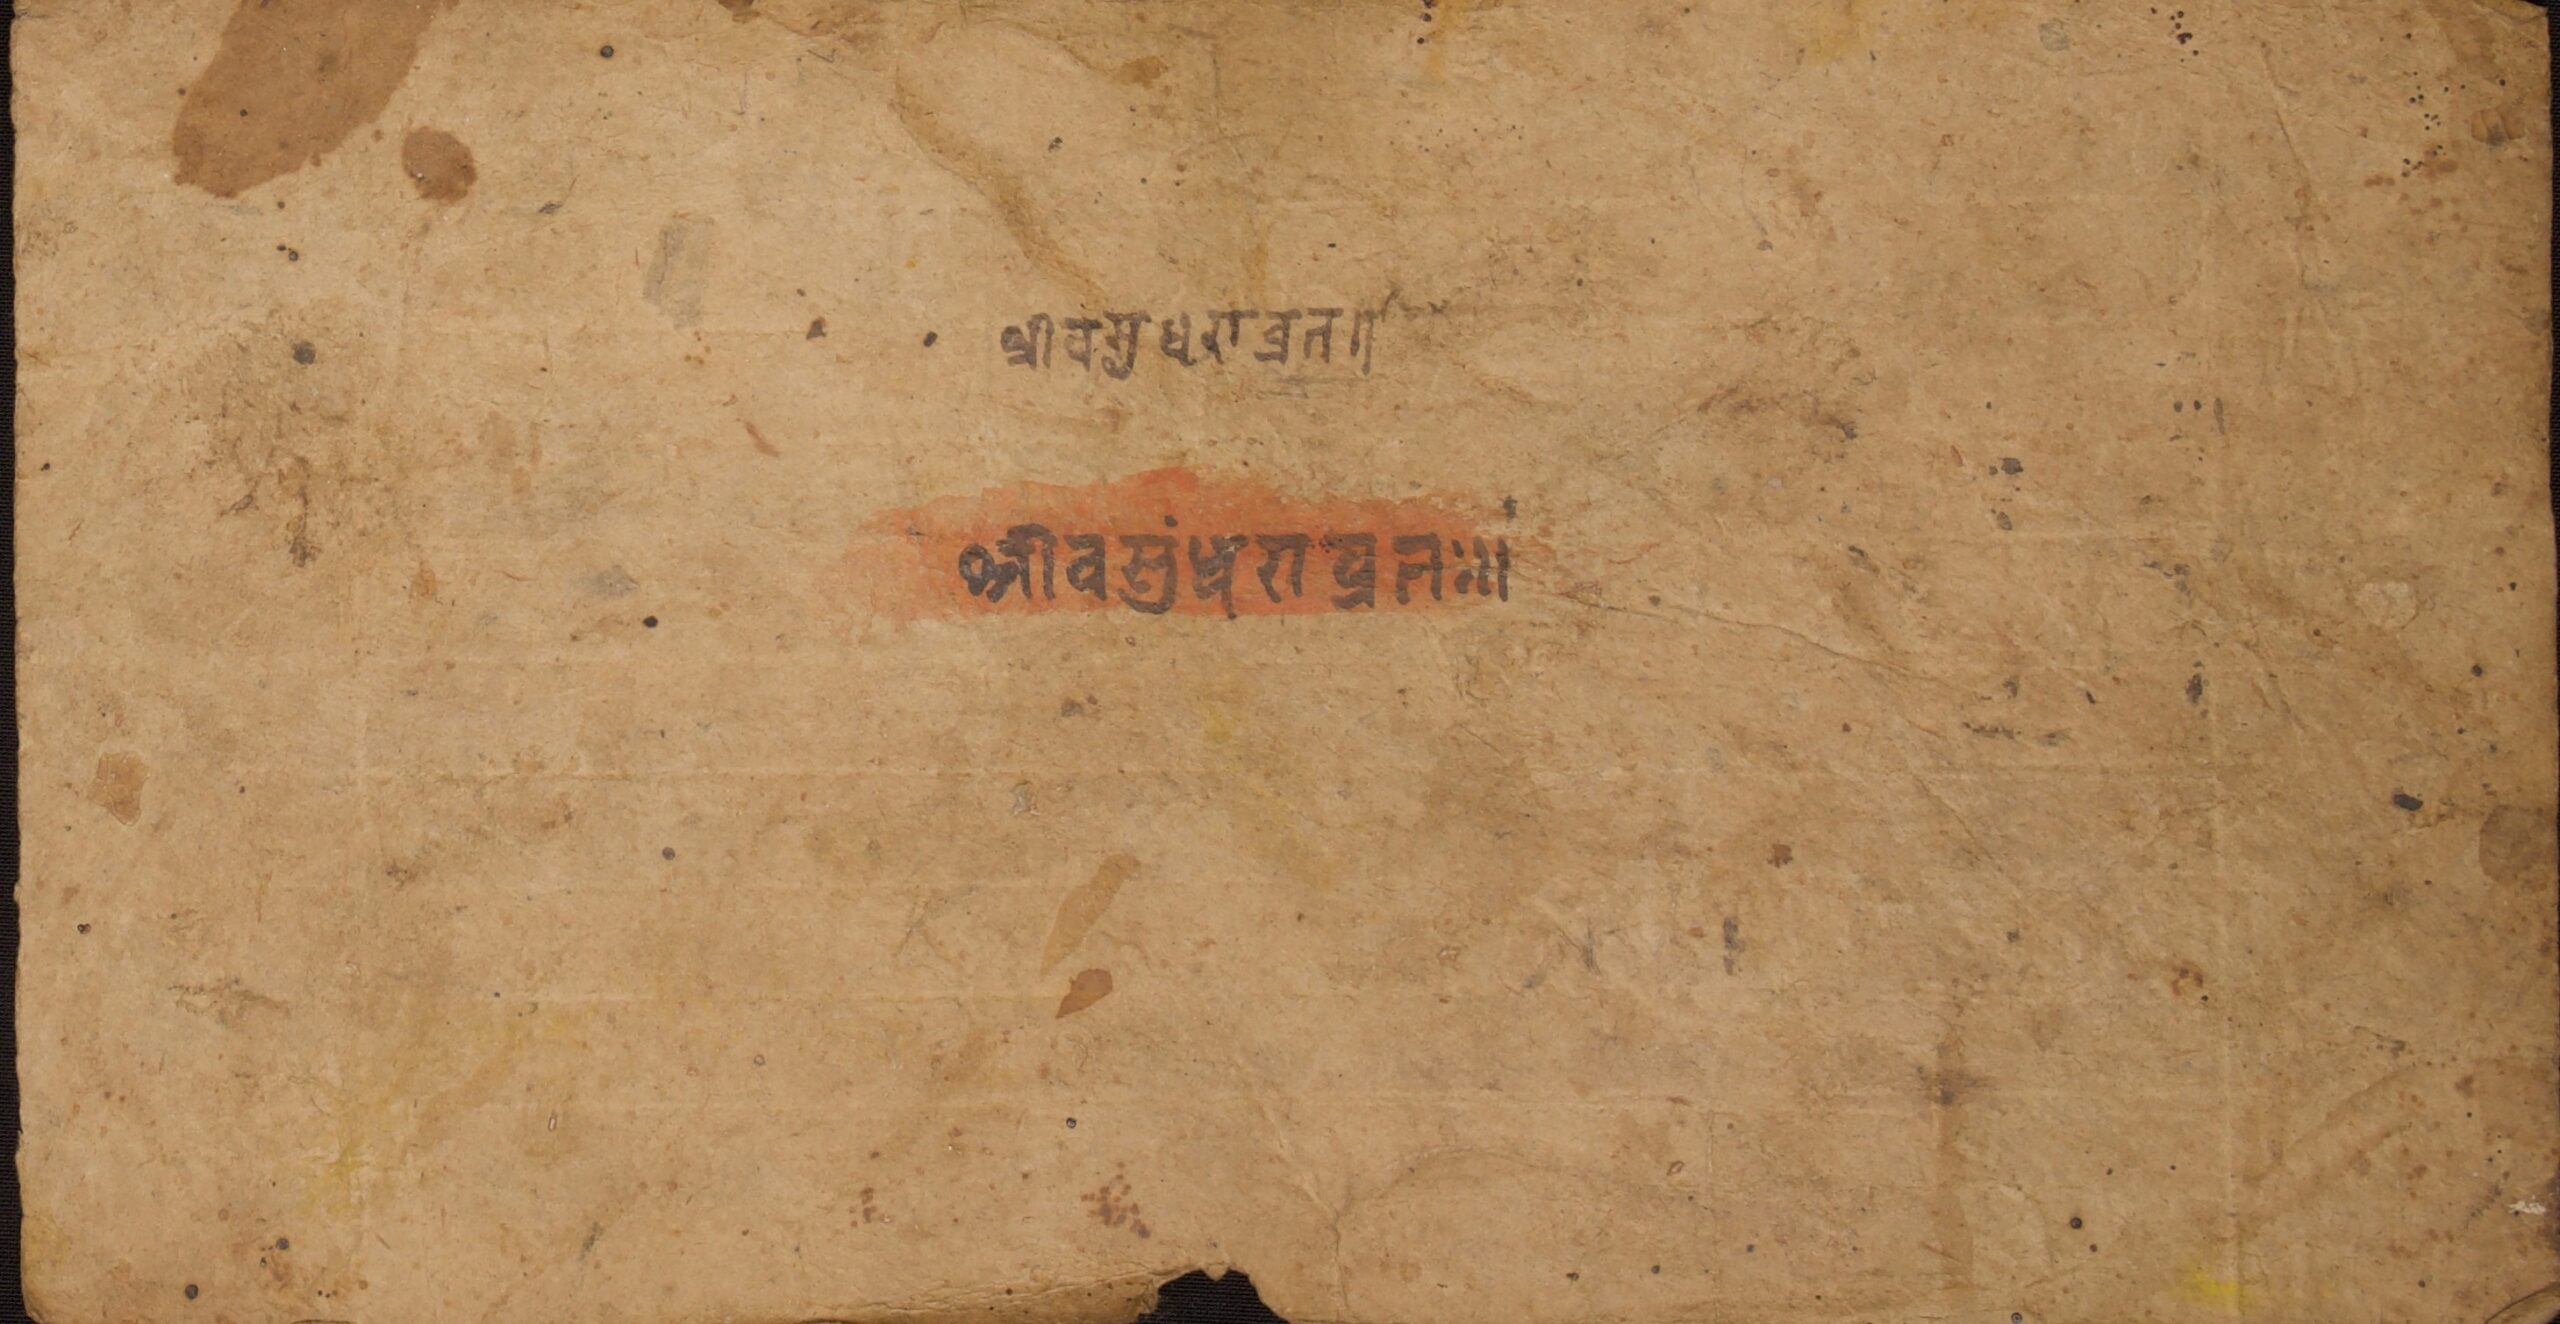 श्रीवसुधराव्रत॥
श्रीवसुंधराव्रतः॥